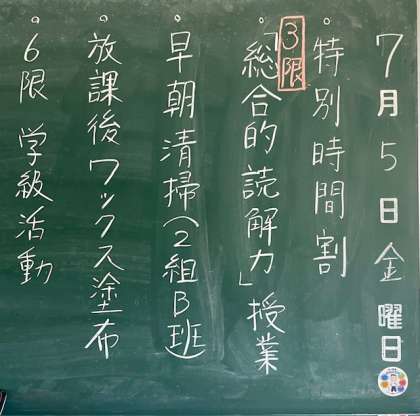 7月5日金曜日
・特別時間割
3限
・「総合的読解力」授業
・早朝清掃(2組B班)
・放課後ワックス塗布
・6限 学級活動